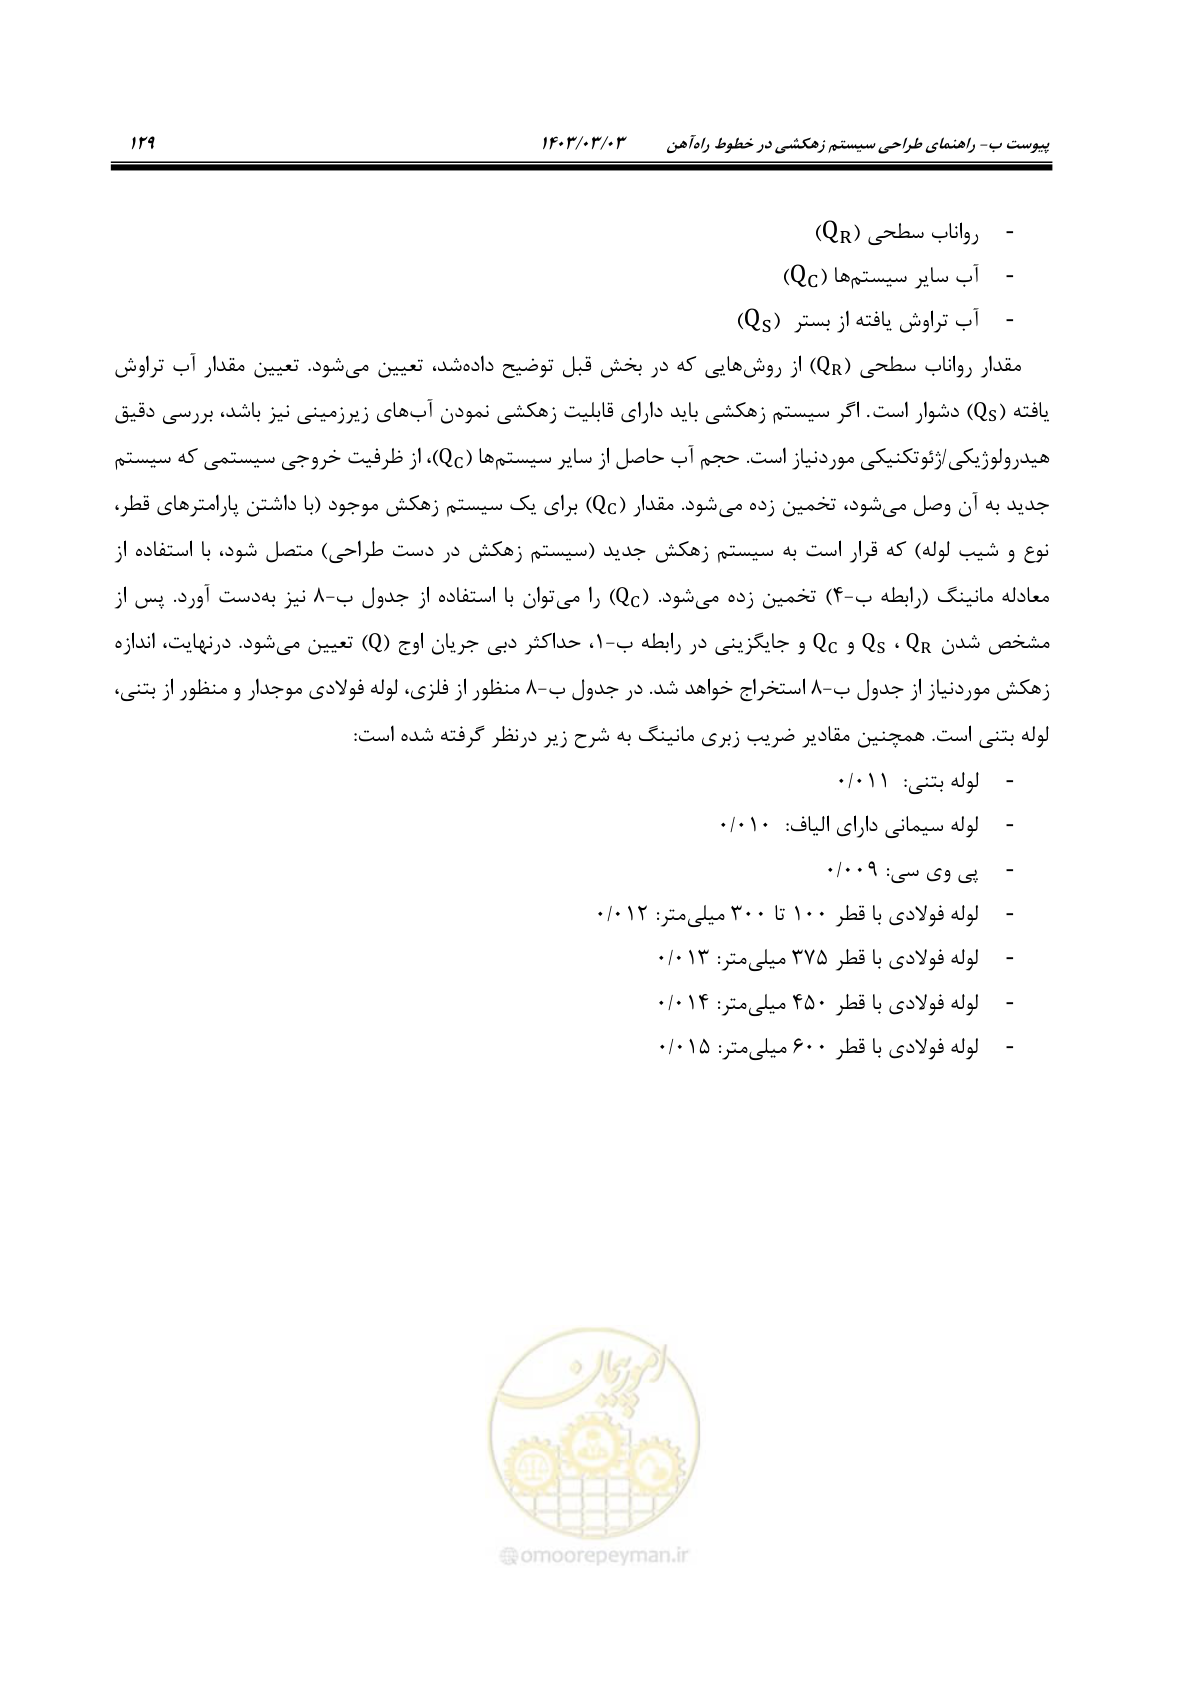 پیوست ب- راهنمای طراحی سیستم زهکشی در خطوط راه‌آهن ۱۴۰۳/۰۳/۰۳ ۱۲۹
- رواناب سطحی (QR)
- آب سایر سیستم‌ها (QC)
- آب تراوش یافته از بستر (QS)
مقدار رواناب سطحی (QR) از روش‌هایی که در بخش قبل توضیح داده‌شد، تعیین می‌شود. تعیین مقدار آب تراوش
یافته (QS) دشوار است. اگر سیستم زهکشی باید دارای قابلیت زهکشی نمودن آب‌های زیرزمینی نیز باشد، بررسی دقیق
هیدرولوژیکی/ژئوتکنیکی موردنیاز است. حجم آب حاصل از سایر سیستم‌ها (QC)، از ظرفیت خروجی سیستمی که سیستم
جدید به آن وصل می‌شود، تخمین زده می‌شود. مقدار (QC) برای یک سیستم زهکش موجود (با داشتن پارامترهای قطر،
نوع و شیب لوله) که قرار است به سیستم زهکش جدید (سیستم زهکش در دست طراحی) متصل شود، با استفاده از
معادله مانینگ (رابطه ب-۴) تخمین زده می‌شود. (QC) را می‌توان با استفاده از جدول ب-۸ نیز به‌دست آورد. پس از
مشخص شدن QR ، QS و QC و جایگزینی در رابطه ب-۱، حداکثر دبی جریان اوج (Q) تعیین می‌شود. درنهایت، اندازه
زهکش موردنیاز از جدول ب-۸ استخراج خواهد شد. در جدول ب-۸ منظور از فلزی، لوله فولادی موجدار و منظور از بتنی،
لوله بتنی است. همچنین مقادیر ضریب زبری مانینگ به شرح زیر درنظر گرفته شده است:
- لوله بتنی: ۰/۰۱۱
- لوله سیمانی دارای الیاف: ۰/۰۱۰
- پی وی سی: ۰/۰۰۹
- لوله فولادی با قطر ۱۰۰ تا ۳۰۰ میلی‌متر: ۰/۰۱۲
- لوله فولادی با قطر ۳۷۵ میلی‌متر: ۰/۰۱۳
- لوله فولادی با قطر ۴۵۰ میلی‌متر: ۰/۰۱۴
- لوله فولادی با قطر ۶۰۰ میلی‌متر: ۰/۰۱۵
امور پیمان
@omoorepeyman.ir